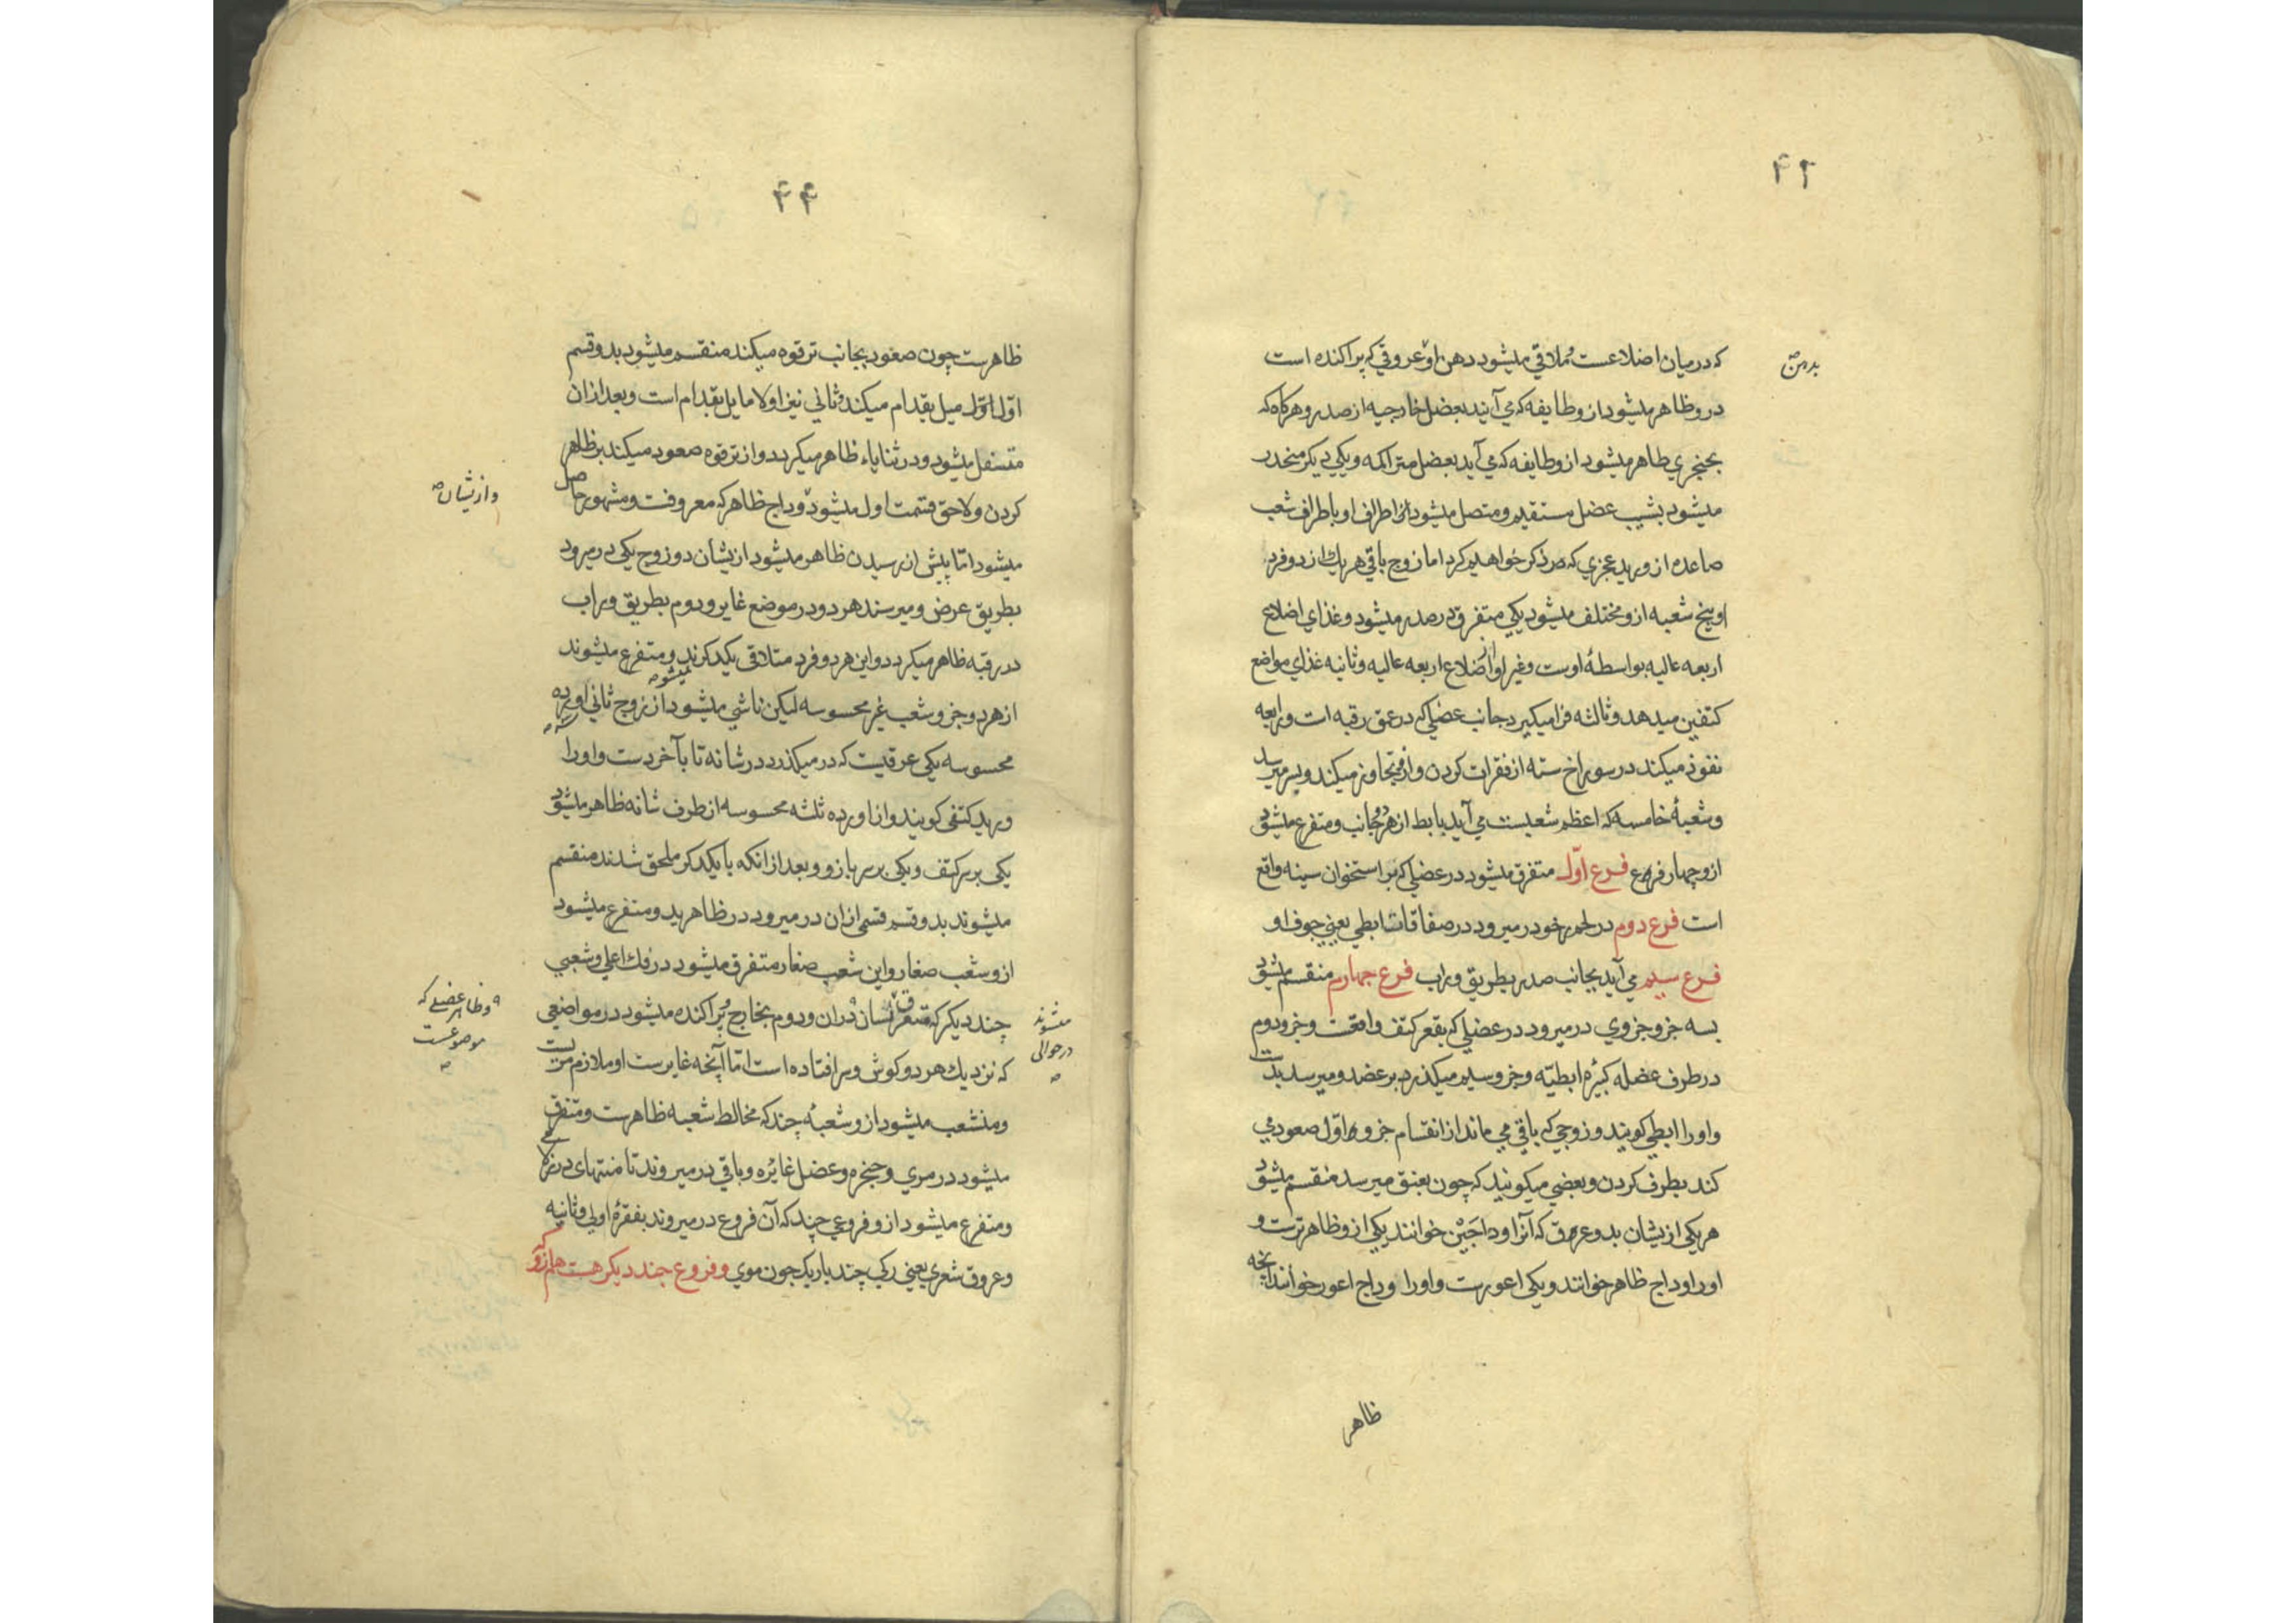 ۴۲
که درمیان اضلاعست و ملاقی میشود دهن او عروقی که پراکنده است
بدهن
درو ظاهر میشود ازو طایفه که می آیند بعضل خارجیه از صدر و هرکاه که
بحنجری ظاهر میشود ازو طایفه که می آید بعضل متراکمه و یکی دیکر منحدر
میشود بشیب عضل مستقیم و متصل میشود اطراف او باطراف شعب
صاعده از ورید عجزی که ذکر خواهیم کرد اما زوج باقی هر یک از دو فرد
او پنج شعبه ازو مختلف میشود یکی متفرق در صدر میشود و غذای اضلاع
اربعه عالیه بواسطهٔ اوست و غیر او از اضلاع اربعه عالیه و ثانیه غذای مواضع
کتفین میدهد و ثالثه فرا میکیرد جانب عضلی که در عمق رقبه است و رابعه
نفوذ میکند در سوراخ سته از فقرات کردن و ازو تجاوز میکند و بسر میرسد
و شعبهٔ خامسه که اعظم شعبست می آید بابط از هر دو جانب و متفرع میشود
ازو چهار فرع فرع اوّل متفرق میشود در عضلی که بر استخوان سینه واقع
است فرع دوم در لحم رخو در میرود در صفاقات ابطی یعنی جوف او
فرع سیم می آید بجانب صدر بطریق وراب فرع چهارم منقسم میشود
بسه جزو جزوی در میرود در عضلی که بقعر کتف واقعست و جزو دوم
در طرف عضله کبیرهٔ ابطیّه و جزو سیم میکذرد بر عضد و میرسد بدست
و او را ابطی کویند و زوجی که باقی می ماند از انقسام جزو اوّل صعود می
کند بطرف کردن و بعضی میکویند که چون بعنق میرسد منقسم میشود
هر یکی ازیشان بدو عرق که آنرا وداجین خوانند یکی ازو ظاهرترست و
او را وداج ظاهر خوانند و یکی اعورست و او را وداج اعور خوانند آنچه
ظاهر
۴۴
ظاهرست چون صعود بجانب ترقوه میکند منقسم میشود بدو قسم
اوّل اوّل میل بقدام میکند و ثانی نیز اولا مایل بقدام است و بعد از ان
متسفل میشود و در ثنایاء ظاهر میکردد و از ترقوه صعود میکند بر ظاهر
کردن و لاحق قسمت اول میشود و وداج ظاهر که معروفست و مشهور حاصل
و ازیشان
میشود امّا پیش از رسیدن ظاهر میشود ازیشان دو زوج یکی در میرود
بطریق عرض و میرسند هر دو در موضع غایر و دوم بطریق وراب
در رقبه ظاهر میکردد و این هر دو فرد متلاقی یکدکر نمیشوند و متفرع میشوند
از هر دو جزو شعب غیر محسوسه لیکن ناشی میشود از زوج ثانی اورده
محسوسه یکی عرقیست که در میکذرد در شانه تا بآخر دست و او را
ورید کتفی کویند و از اورده ثلثه محسوسه از طرف شانه ظاهر میشود
یکی بر سر کتف و یکی بر سر بازو و بعد از انکه با یکدکر ملحق شدند منقسم
میشوند بدو قسم قسمی ازان در میرود در ظاهر ید و متفرع میشود
ازو شعب صغار و این شعب صغار متفرق میشود در فک اعلی و شعبی
چند دیکر که متفرق میشوند در حوالی لسان و دوم بخارج پراکنده میشود در مواضعی
و ظاهر عضلی که موضوعست
که نزدیک هر دو کوش و سر افتاده است امّا آنچه غایرست او ملازم مریست
و منشعب میشود ازو شعبهٔ چند که مخالط شعبه ظاهرست و متفرق
میشود در مری و حنجره و عضل غائره و باقی در میروند تا منتهای درزها
و متفرع میشود ازو فروعی چند که آن فروع در میروند بفقرهٔ اولی و ثانیه
و عروق شعری یعنی رکی چند باریک چون موی و فروع چند دیکر هست هم ازو که